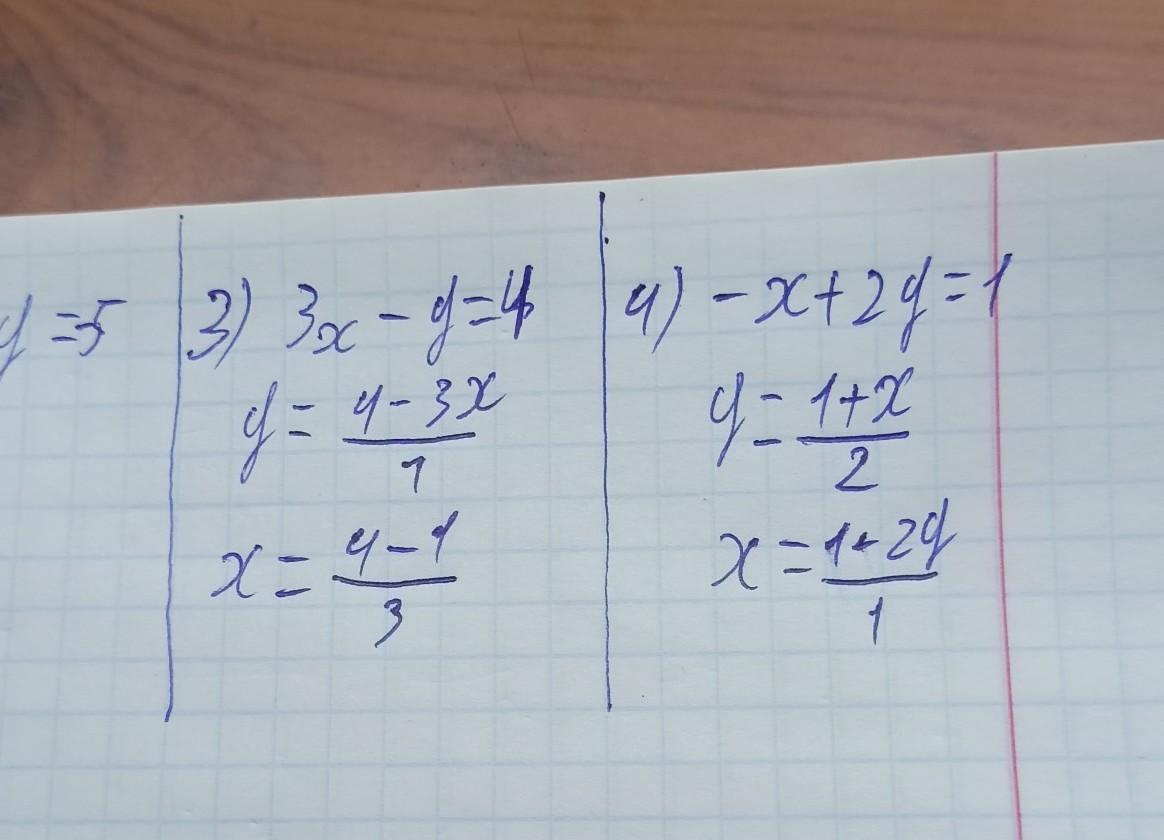 y = 5
3) 3x - y = 4
y = \frac{4 - 3x}{1}
x = \frac{4 - 1}{3}
4) -x + 2y = 1
y = \frac{1 + x}{2}
x = \frac{1 - 2y}{1}